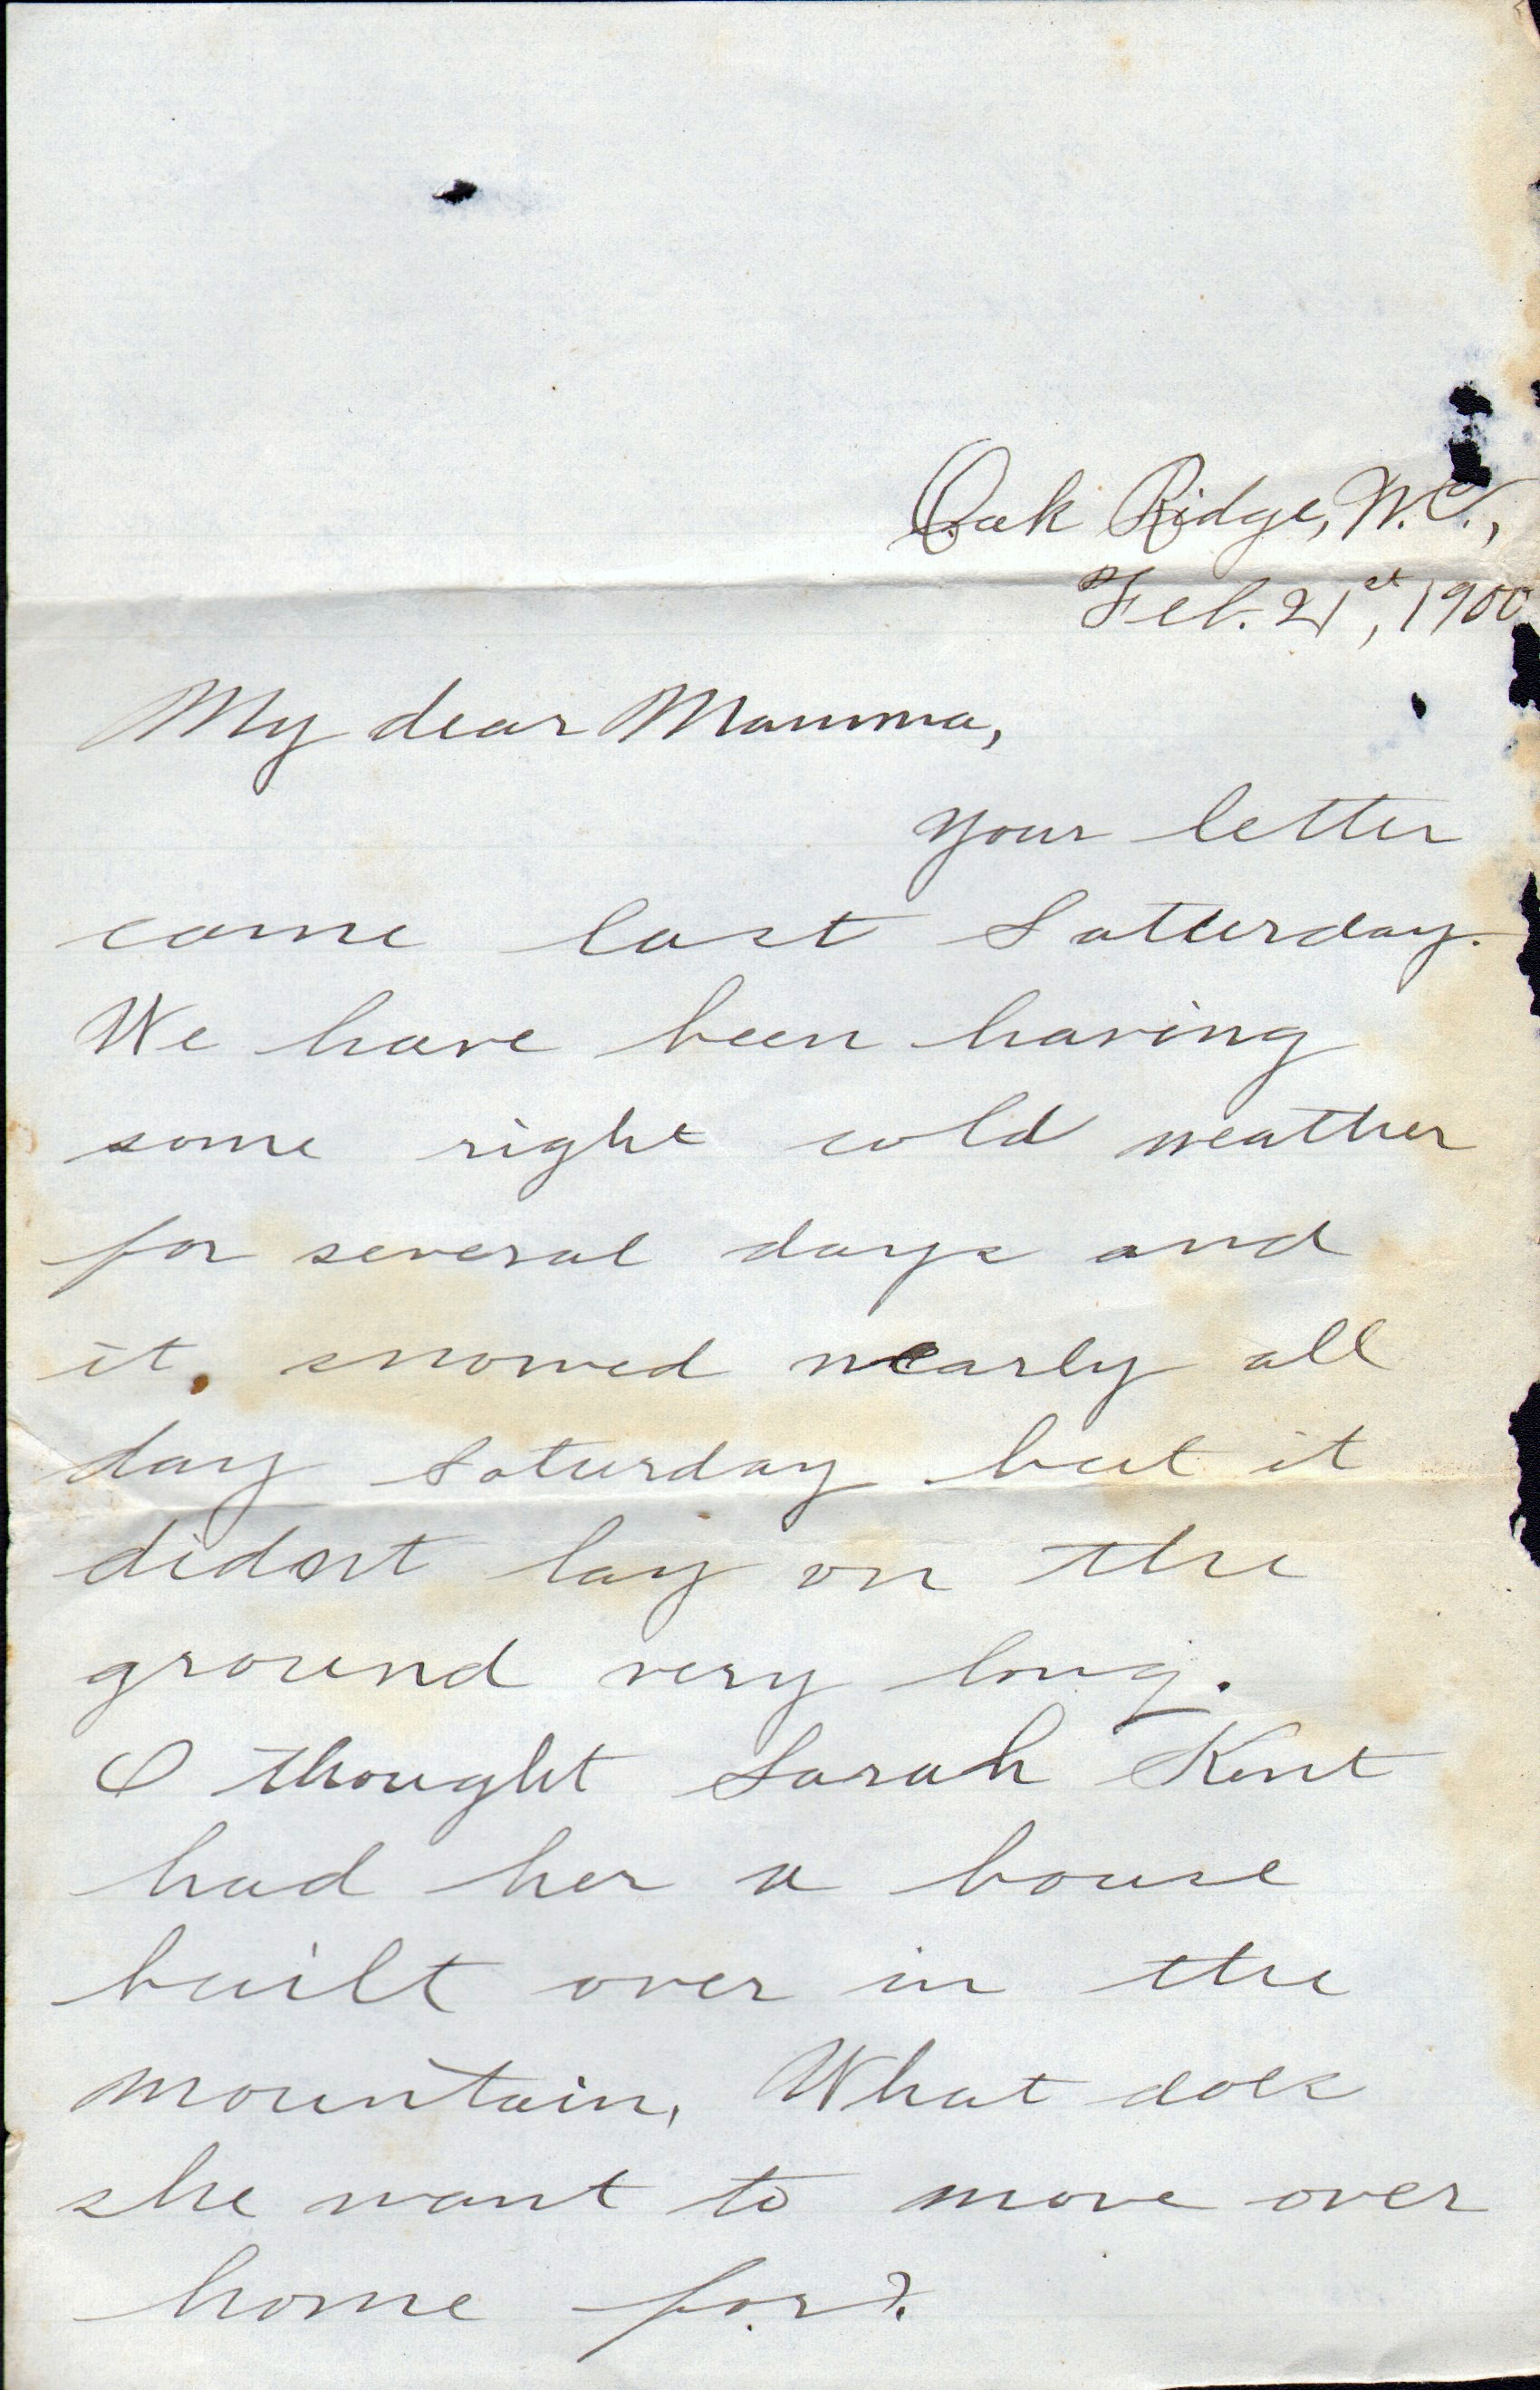 Oak Ridge, N.C.,
Feb. 21st, 1900
My dear Mamma,
your letter
came last Satturday.
We have been having
some right cold weather
for several days and
it snowed nearly all
day Saturday but it
didnt lay on the
ground very long.
I thought Sarah Kent
had her a house
built over in the
mountain, What does
she want to move over
home for?